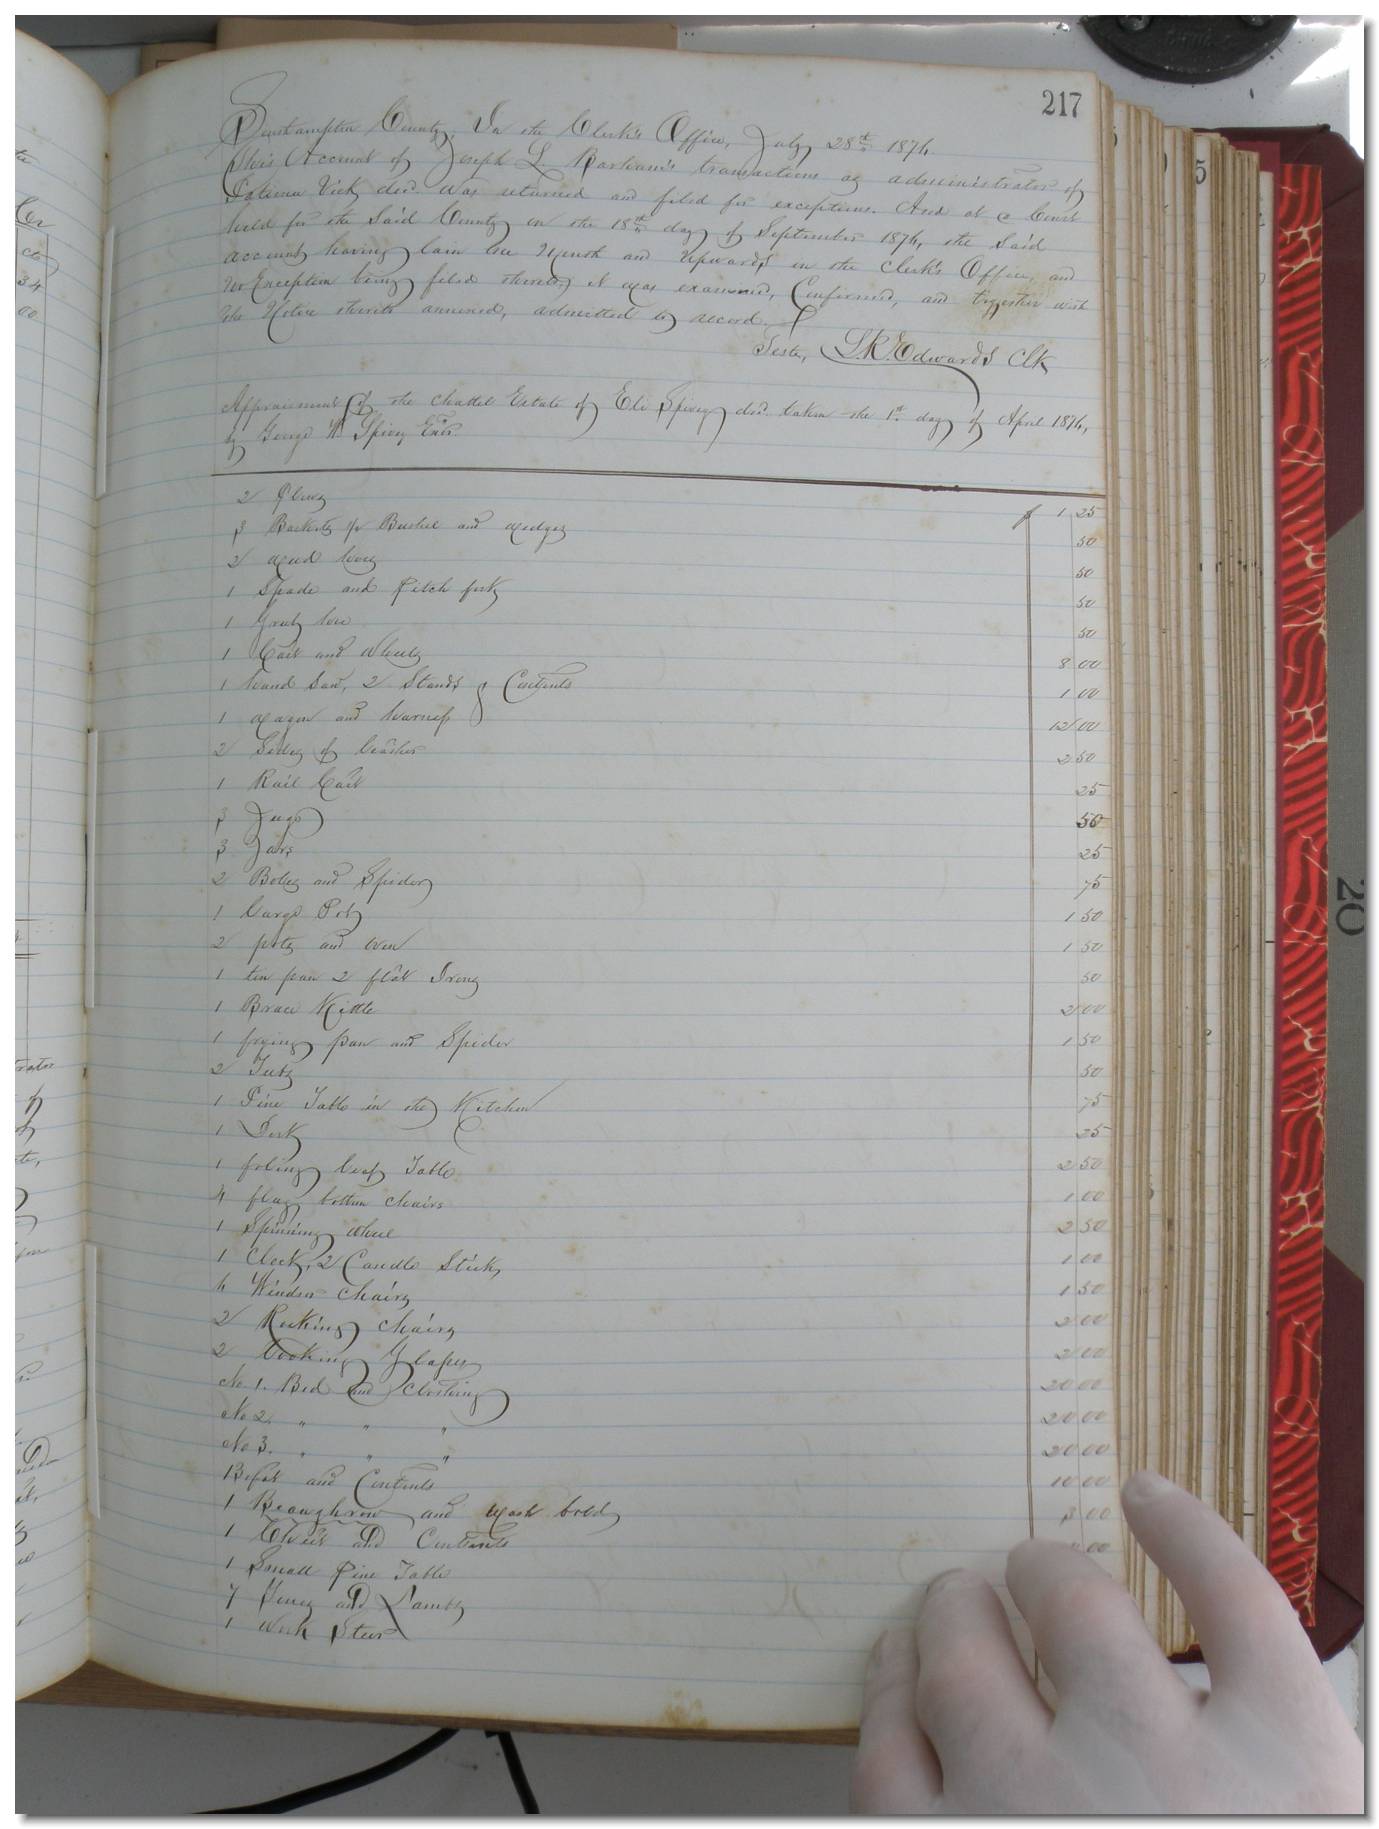 217
Southampton County, In the Clerk's Office, July 28th 1874
This Account of Joseph L. Barham's transactions as administrator of
Vick decd. was returned and filed for exceptions. And at a Court
held for the said County on the 18th day of September 1874, the said
account having lain one Month and Upwards in the Clerk's Office, and
no Exception being filed thereto, it was examined, Confirmed, and together with
the Notice thereto annexed, admitted to record.
Teste, L. R. Edwards Clk
Appraisment of the chattel Estate of Eli Spivey decd. taken the 1st day of April 1874,
by George W. Spivey Exor.
2 Plows $ 1 25
3 Baskets 1/2 Bushel and wedges 50
2 weed hoes 50
1 Spade and Pitch fork 50
1 Grub hoe 50
1 Cart and Wheels 8 00
1 hand saw, 2 Stands & Contents 1 00
1 wagon and harness 12 00
2 Sides of leather 2 50
1 Rail Cart 25
3 Jugs 50
3 Jars 25
2 and Spider 75
1 Large Pot 1 50
2 pots and oven 1 50
1 tin pan 2 flat Irons 50
1 Brass Kittle 2 00
1 frying pan and Spider 1 50
2 Tubs 50
1 Pine Table in the Kitchen 75
1 Desk 25
1 foling leaf Table 2 50
4 flag bottom chairs 1 00
1 Spinning wheel 2 50
1 Clock, 2 Candle Sticks 1 00
4 Windsor Chairs 1 50
2 Rocking chairs 2 00
2 Looking Glasses 2 00
No 1. Bed and Clothing 20 00
No 2. " " " 20 00
No 3. " " " 20 00
Bofat and Contents 10 00
1 and wash bold 3 00
1 Chest and Contents 00
1 Small Pine Table
7 and Lambs
1 Work Steer
5
20